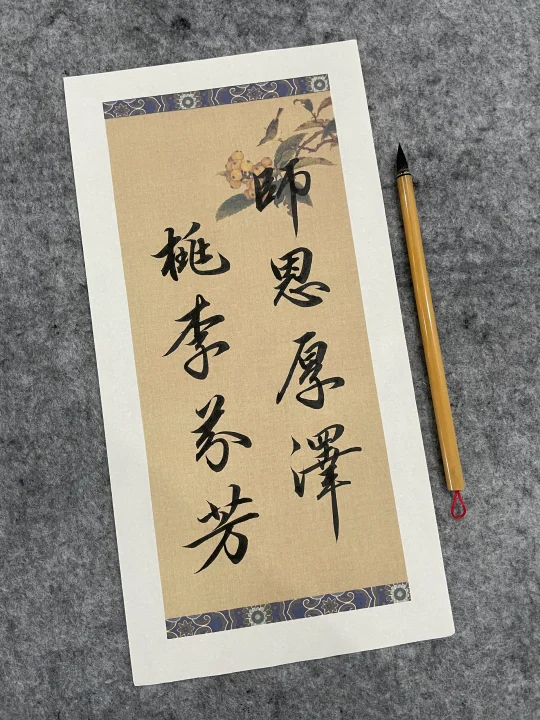 師恩厚澤
桃李芬芳